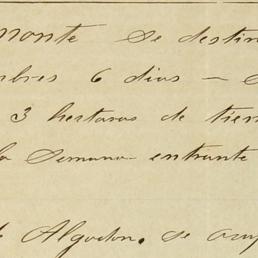 monte se destin
bres 6 dias —
3 hectaras de tier
la Semana entrante
Algodon. se ocup